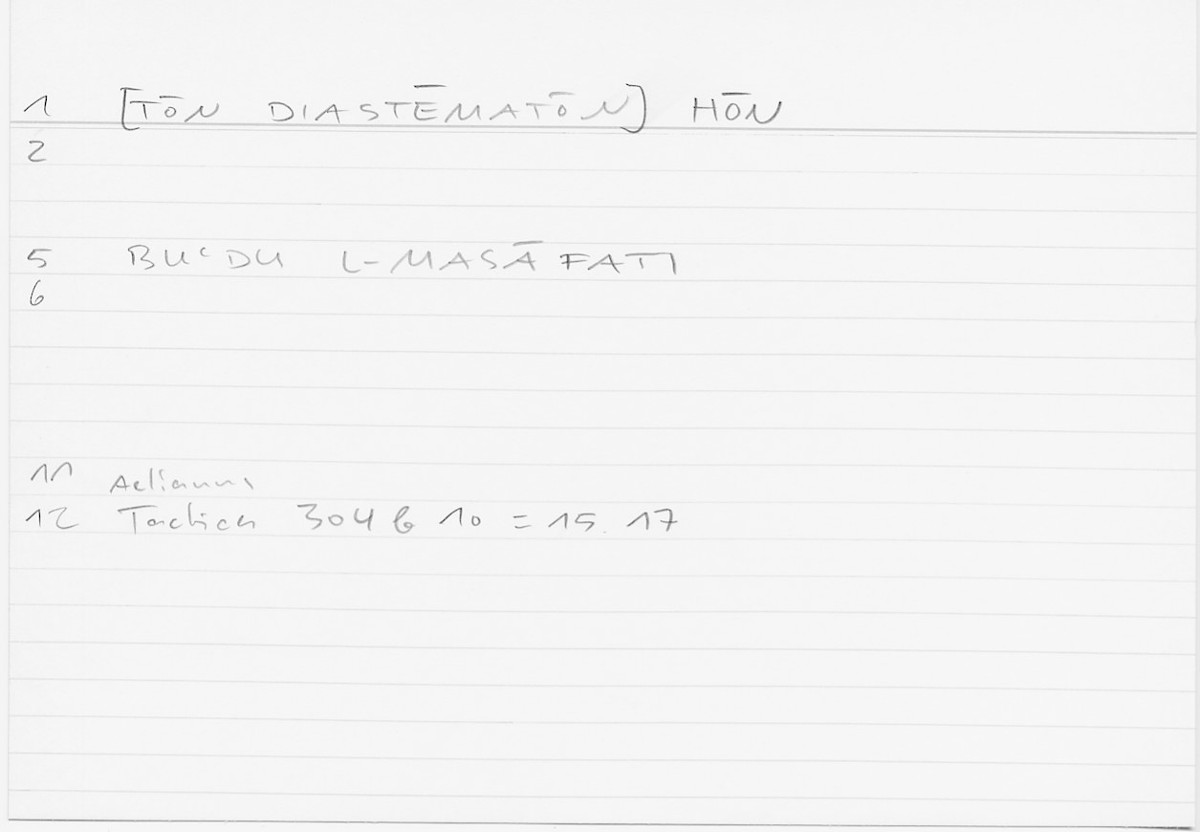 1 [TŌN DIASTĒMATŌN] HŌN
2
5 BUʿDU L-MASĀFATI
6
11 Aelianus
12 Tactica 304 b 10 = 15.17